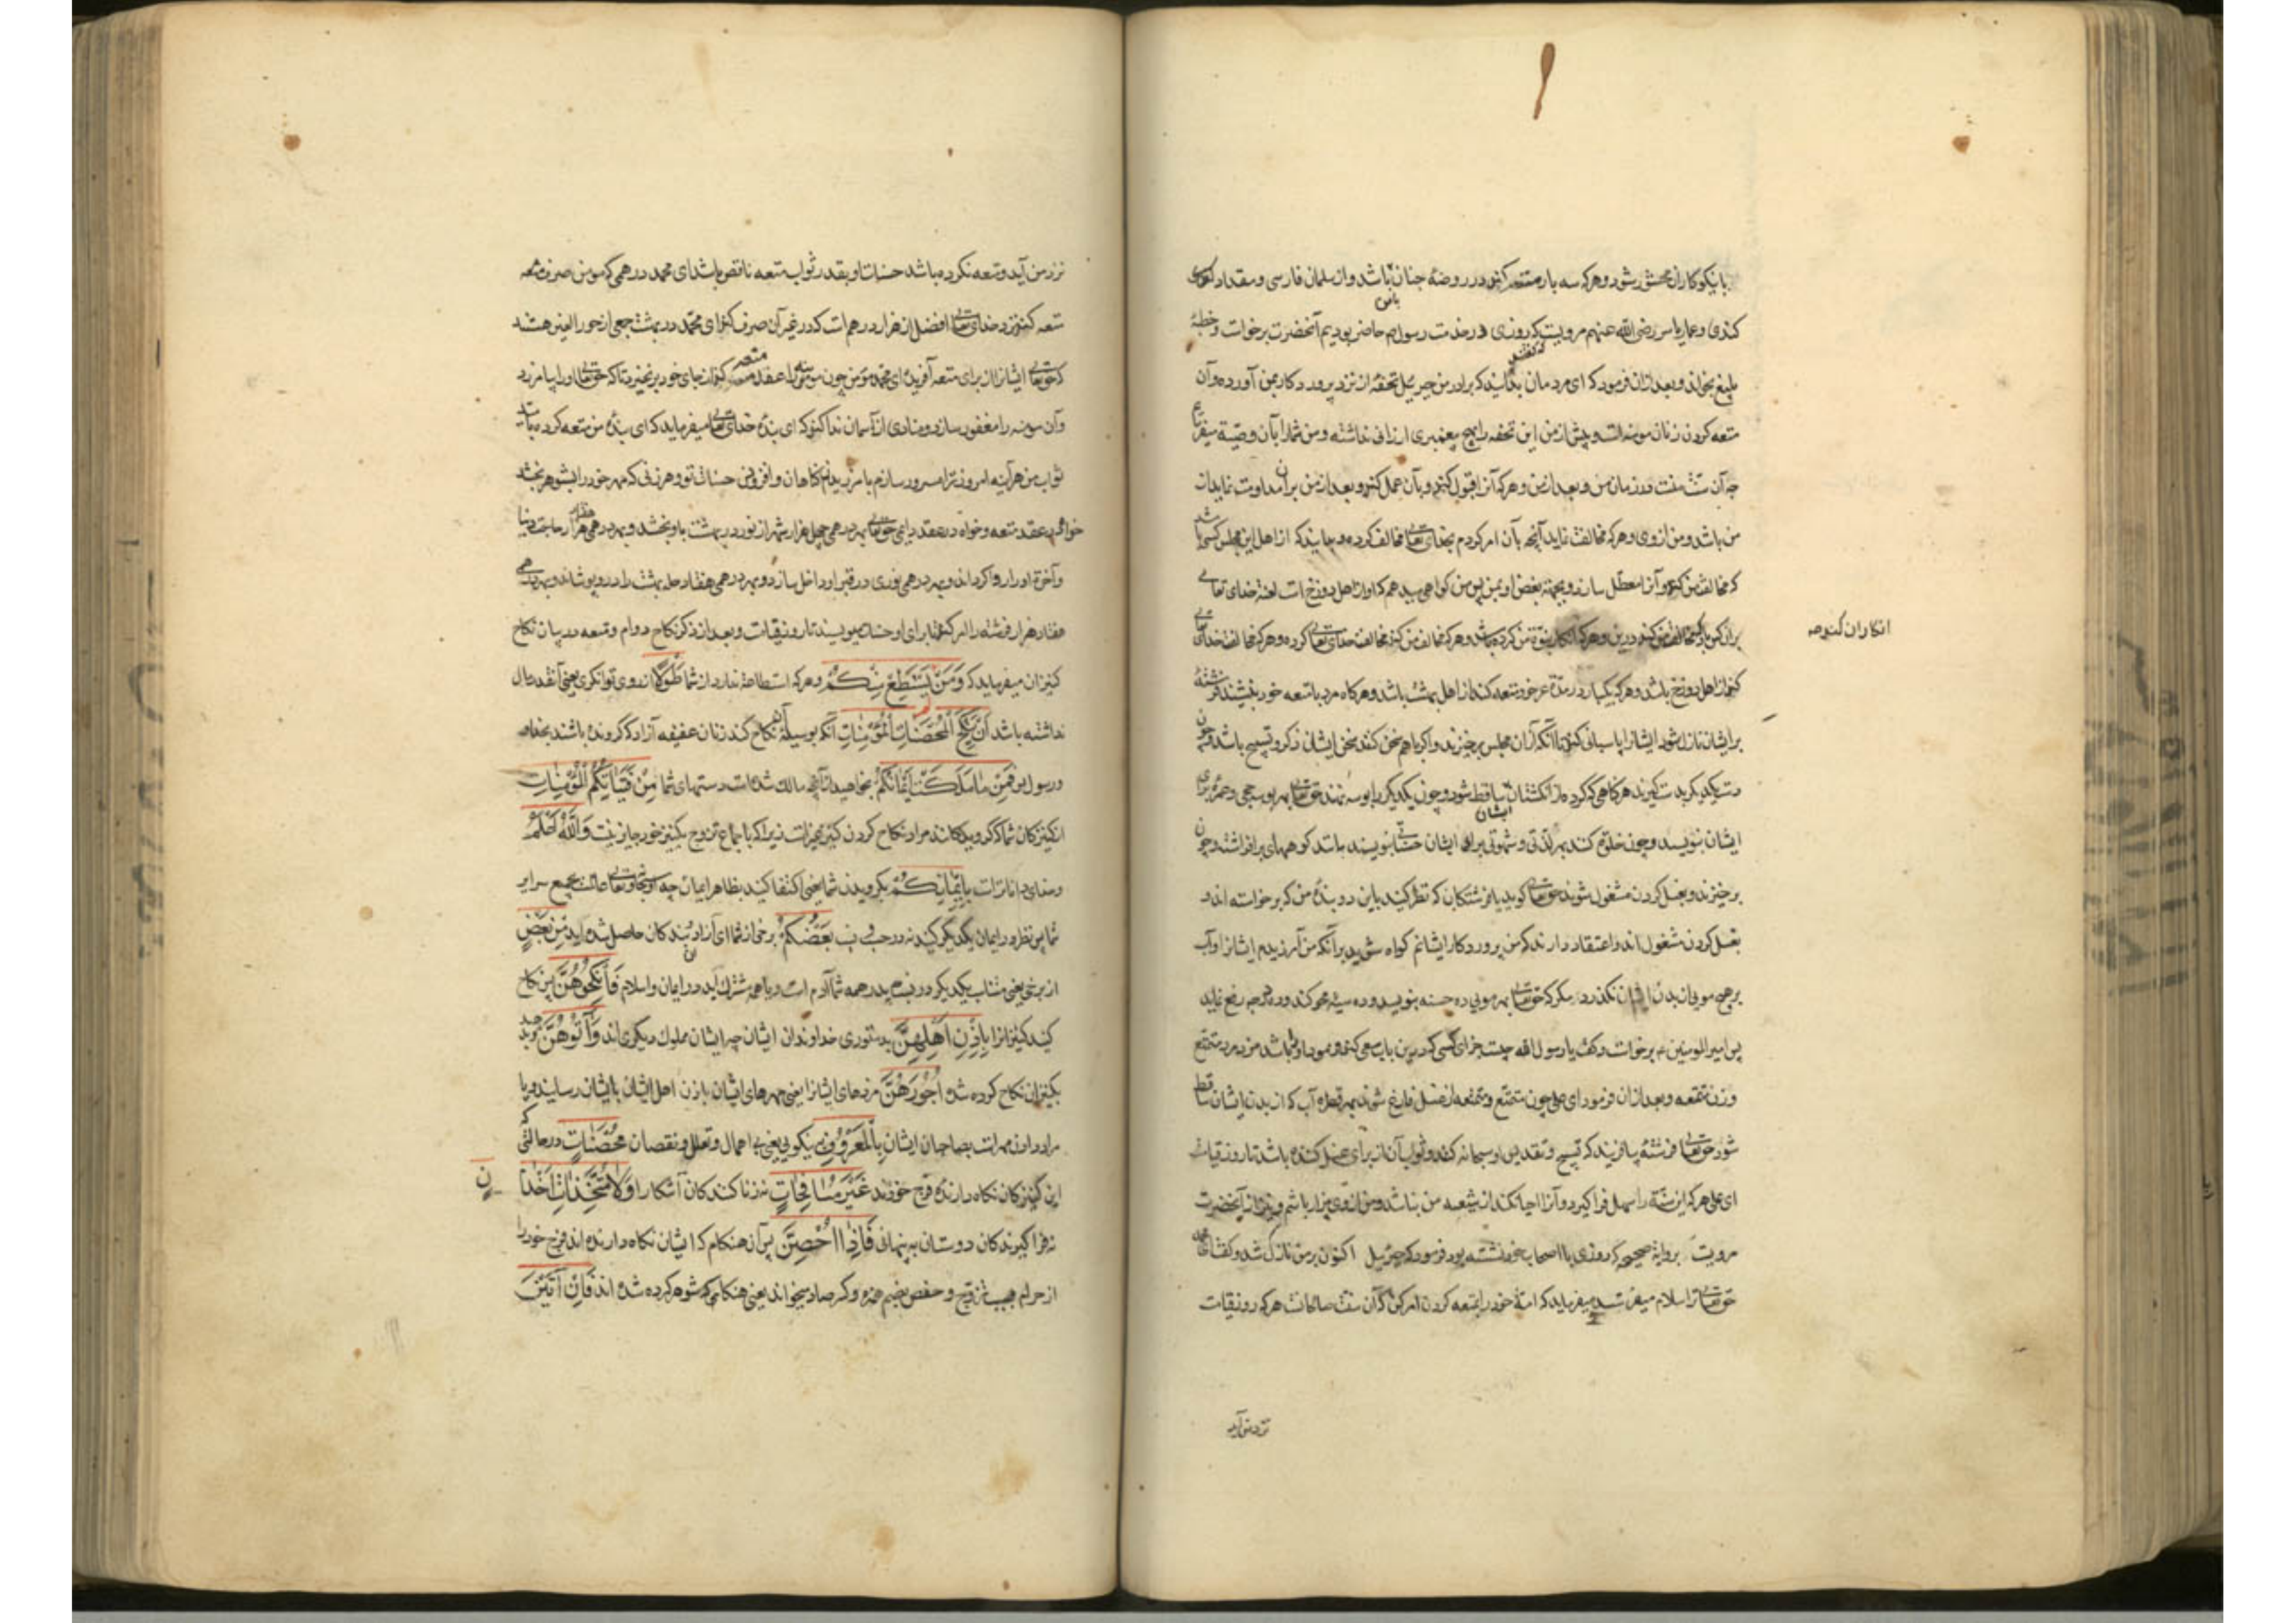 با نیکوکاران محشور شود و هر که سه بار متعه کند در روضهٔ جنان با من باشد و از سلمان فارسی و مقداد اسود
کندی و عمار یاسر رضی الله عنهم مرویست که روزی در خدمت رسول حاضر بودیم آنحضرت برخاست و خطبهٔ
بلیغ بخواند و بعد از آن فرمود که ای مردمان بدانید که برادر من جبرئیل تحفهٔ از نزد پروردگار بمن آورده و آن
متعه کردن زنان مومنه است و پیش از من این تحفه را بهیچ پیغمبری ارزانی نداشته و من شما را بآن وصیة میفرمایم
چه آن سنت منست در زمان من و بعد از من و هر که آنرا قبول کند و بآن عمل کند و بعد از من بر آن مداومت نماید از
من باشد و من از وی و هر که مخالفت نماید آنچه بآن امر کردم بخدای تعالی مخالفت کرده و بدانید که از اهل این مجلس کسی باشد
که مخالفت من کند و آنرا معطل سازد و بجهة بغض او بمن پس من گواهی میدهم که او از اهل دوزخ است لعنة خدای تعالی
بر آن کس باد که مخالفت من کند درین و هر که انکار نبوة من کرده باشد و هر که مخالفت من کند مخالفت خدای تعالی کرده و هر که مخالفت خدای تعالی
انکار آن کند صح
کند از اهل دوزخ باشد و هر که یکبار در مدة عمر خود متعه کند از اهل بهشت باشد و هر گاه مرد با متعه خود بنشیند فرشتهٔ
بر ایشان نازل شود ایشانرا پاسبانی کند تا آنکه از آن مجلس برخیزند و اگر با هم سخن کنند سخن ایشان ذکر و تسبیح باشد و چون
دست یکدیگر بدست گیرند هر گناهی که کرده از انگشتان ایشان ساقط شود و چون یکدیگر را بوسه نهند حق تعالی بهر بوسه حجی و عمرهٔ برای
ایشان بنویسد و چون خلوة کنند بهر لذتی و شهوتی برای ایشان حسنه بنویسند مانند کوههای برافراشته و چون
برخیزند و بغسل کردن مشغول شوند حق تعالی گوید با فرشتگان که نظر کنید باین دو بندهٔ من که برخواسته اند و
بغسل کردن مشغول اند و اعتقاد دارند که من پروردگار ایشانم گواه شوید بر آنکه من آمرزیدم ایشانرا و آب
بر هیچ مویی از بدن ایشان نگذرد مگر که حق تعالی بهر مویی ده حسنه بنویسد و ده سیئه محو کند و ده درجه رفع نماید
پس امیرالمومنین برخواست و گفت یا رسول الله چیست جزای کسی که درین باب سعی کند فرمود او را باشد مزد مرد متمتع
و زن متمتعه و بعد از آن فرمود ای علی چون متمتع و متمتعه از غسل فارغ شوند بهر قطره آب که از بدن ایشان ساقط
شود حق تعالی فرشتهٔ بیافریند که تسبیح و تقدیس او سبحانه کند و ثواب آن از برای غسل کننده باشد تا روز قیامت
ای علی هر که این سنة را سهل فرا گیرد و آنرا احیا نکند از شیعه من نباشد و من از وی بیزار باشم و نیز از آنحضرت
مرویست بروایة صحیحه که روزی با اصحاب خود نشسته بود فرمود که جبرئیل اکنون بر من نازل شد و گفت ای محمد
حق تعالی ترا سلام میفرستد و میفرماید که امة خود را بمتعه کردن امر کن که آن سنت صالحانست هر که روز قیامت
نزد من آید
نزد من آید و متعه نکرده باشد حسنات او بقدر ثواب متعه ناقص باشد ای محمد درهمی که مومن صرف متعه
متعه کند نزد خدای تعالی افضل از هزار درهم است که در غیر آن صرف کند ای محمد در بهشت جمعی از حور العین هستند
که حق تعالی ایشانرا از برای متعه آفریده ای محمد مؤمن چون مومنه را عقد متعه کند از جای خود برنخیزد تا که حق تعالی او را بیامرزد
و آن مومنه را مغفور سازد و منادی از آسمان ندا کند که ای بندهٔ خدای تعالی میفرماید که ای بندهٔ من متعه کرده بامید
ثواب من هر آینه امروز ترا مسرور سازم بآمرزیدن گناهان و افزودن حسنات تو و هر زنی که مهر خود را بشوهر بخشد
خواه در عقد متعه و خواه در عقد دایمی حق تعالی بهر درهمی چهل هزار شهر از نور در بهشت باو بخشد و بهر درهمی هفتاد هزار حاجت دنیا
و آخرة او را روا گرداند و بهر درهمی نوری در قبر او داخل سازد و بهر درهمی هفتاد حله بهشت در او پوشاند و بهر درهمی
هفتاد هزار فرشته را امر کند تا برای او حسنات مینویسند تا روز قیامت و بعد از ذکر نکاح دوام و متعه در بیان نکاح
کنیزان میفرماید که وَمَنْ لَمْ یَسْتَطِعْ مِنْکُمْ و هر که استطاعة ندارد از شما طَوْلًا از روی توانگری یعنی آنقدر مال
نداشته باشد أَنْ یَنْکِحَ الْمُحْصَنَاتِ الْمُؤْمِنَاتِ آنکه بوسیلهٔ آن نکاح کند زنان عفیفه آزاد که گرونده باشند بخدا
و رسول او فَمِنْ مَا مَلَکَتْ أَیْمَانُکُمْ بخواهید از آنچه مالک شده است دستهای شما مِنْ فَتَیَاتِکُمُ الْمُؤْمِنَاتِ
از کنیزکان شما که گرویدگانند مراد نکاح کردن کنیز غیر است زیرا که باجماع تزوج بکنیز خود جایز نیست وَاللَّهُ أَعْلَمُ
و خدای داناتر است بِإِیمَانِکُمْ بگرویدن شما یعنی اکتفا کنید بظاهر ایمان چه او سبحانه و تعالی عالمست بجمیع سرایر
شما پس نظر در ایمان یکدیگر کنید نه در حسب و نسب بَعْضُکُمْ برخی از شما ای آزادان و بندگان حاصل شده اید مِنْ بَعْضٍ
از برخی یعنی متناسب یکدیگرید در نسب چه پدر همه شما آدم است و با هم مشترک آید در ایمان و اسلام فَانْکِحُوهُنَّ پس نکاح
کنید کنیزانرا بِإِذْنِ أَهْلِهِنَّ بدستوری خداوندان ایشان چه ایشان مملوک دیگری اند وَآتُوهُنَّ و بدهید
بکنیزان نکاح کرده شده أُجُورَهُنَّ مزدهای ایشانرا یعنی مهرهای ایشان باذن اهل ایشان بایشان رسانید و یا
مراد دادن مهر است بصاحبان ایشان بِالْمَعْرُوفِ به نیکویی یعنی بی اهمال و تعلل و نقصان مُحْصَنَاتٍ در حالتی که
این کنیزکان نگاه دارندهٔ فرج خودند غَیْرَ مُسَافِحَاتٍ نه زناکنندگان آشکارا وَلَا مُتَّخِذَاتِ أَخْدَانٍ
نه فراگیرندگان دوستان به پنهانی فَإِذَا أُحْصِنَّ پس آن هنگام که ایشان نگاه دارنده اند فرج خود را
از حرام بسبب تزویج و حفص بضم همزه و کسر صاد میخواند یعنی هنگامی که شوهر کرده شده اند فَإِنْ أَتَیْنَ